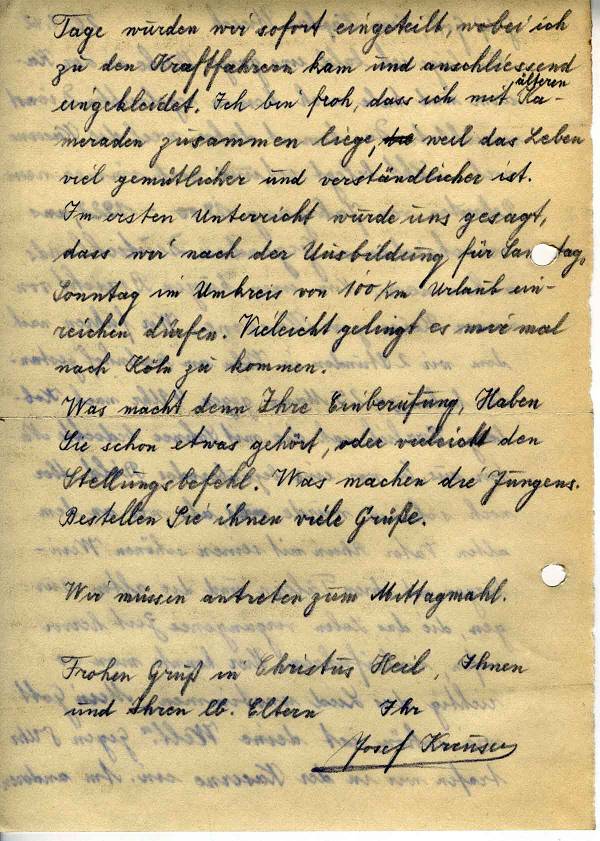 Tage wurden wir sofort eingeteilt, wobei ich
zu den Kraftfahrern kam und anschliessend
eingekleidet. Ich bin froh, dass ich mit älteren Ka-
meraden zusammen liege, weil das Leben
viel gemütlicher und verständlicher ist.
Im ersten Unterricht wurde uns gesagt,
dass wir nach der Ausbildung für Samstag,
Sonntag im Umkreis von 100 km Urlaub ein-
reichen dürfen. Vieleicht gelingt es mir mal
nach Köln zu kommen.
Was macht denn Ihre Einberufung, Haben
Sie schon etwas gehört, oder vieleicht den
Stellungsbefehl. Was machen die Jungens.
Bestellen Sie ihnen viele Grüße.
Wir müssen antreten zum Mittagmahl.
Frohen Gruß in Christus Heil, Ihnen
und Ihren lb. Eltern Ihr
Josef